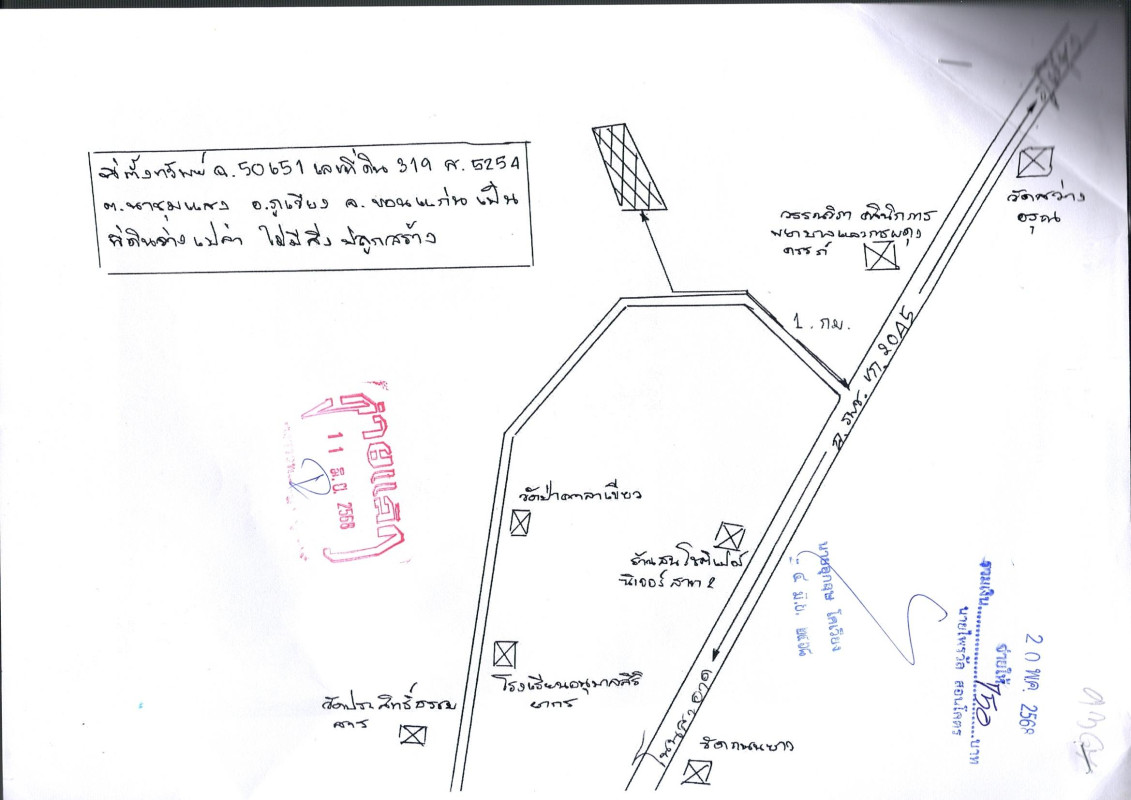 ที่ตั้งทรัพย์ ฉ.50651 เลขที่ดิน 319 ส. 5254
ต.นาชุมแสง อ.ภูเวียง จ.ขอนแก่น เป็น
ที่ดินว่างเปล่า ไม่มีสิ่งปลูกสร้าง
วัดสว่าง
อรุณ
วรรณวิภา คลินิกการ
พยาบาลและการผดุง
ครรภ์
1. กม.
ถ. รพช. ขก. 2045
จ่ายแล้ว
11 มิ.ย. 2568
วัดป่าศาลาเขียว
ร้านสมโชคเฟอร์
นิเจอร์สาขา 2
โรงเรียนอนุบาลสิริ
ยากร
วัดประสิทธิ์ธรรม
สาร
วัดถนนยาว
โนนสะอาด
โคเวียง
๔ มิ.ย. ๒๕๖๘
20 พค. 2568
จ่ายให้
รวมเงิน 750 บาท
นายไพรวัล สอนโคตร